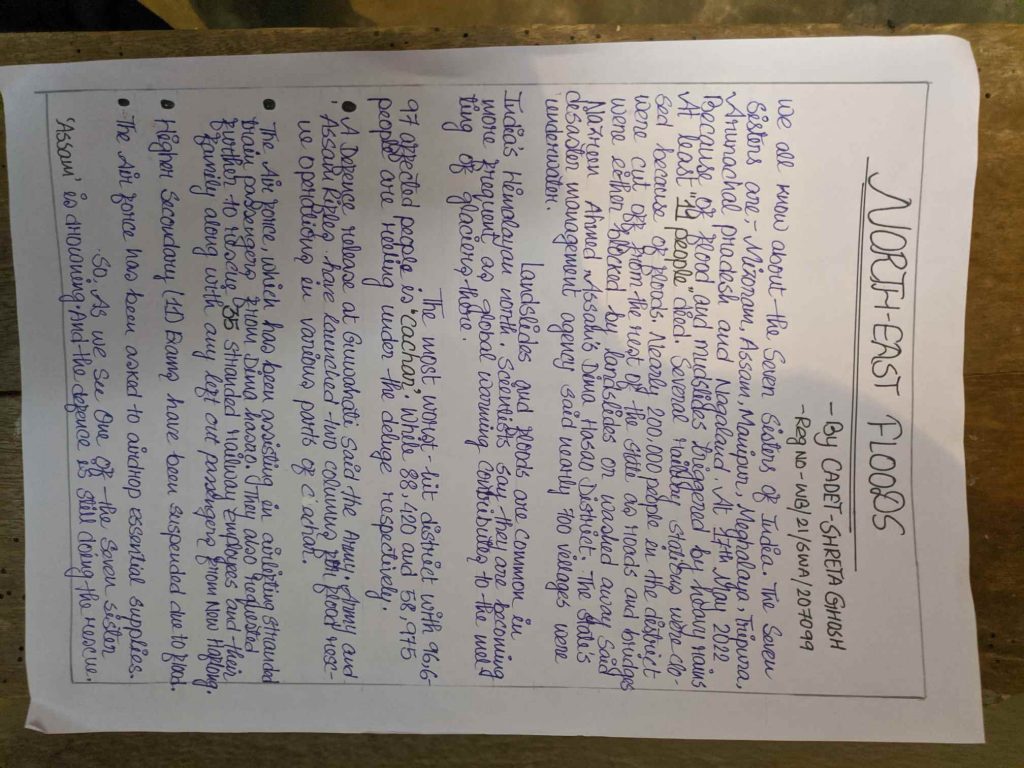 NORTH-EAST FLOODS
- By CADET-SHRETA GHOSH
- Reg NO - WB/21/SWA/207099
we all know about the Seven Sisters of India. The Seven
Sisters are:- Mizoram, Assam, Manipur, Meghalaya, Tripura,
Arunachal pradesh and Nagaland. At 17th May 2022
Because of flood and mudslides triggered by heavy rains
At least "11 people" died. Several railway stations were clo-
sed because of floods. Nearly 200,000 people in the district
were cut off from the rest of the state as roads and bridges
were either blocked by landslides or washed away said
Nazreen Ahmed Assam's Dima Hasao District. The state's
desaster management agency said nearly 700 villages were
underwater.
Landslides and floods are common in
India's Himalayan north. Scientists say they are becoming
more frequent as global warming contributes to the mel
ting of glaciers there.
The most worst-hit district with 96,6-
97 affected people is "cachar", While 88,420 and 58,975
people are reeling under the deluge respectively.
• A Defence release at Guwahati Said the Army, Army and
Assam Rifles have launched two columns for flood resc-
ue operations in various parts of cachar.
• The Air force, which has been assisting in airlifting stranded
train passengers from Dima hasao. They also requested
further to rescue 35 stranded railway Employees and their
family along with any left out passengers from New Haflong.
• Higher Secondary (+1) Exams have been suspended due to floods.
• The Air force has been asked to airdrop essential supplies.
So, As we see One of the Seven sister
'Assam' is drowning. And the defence is still doing the rescue.